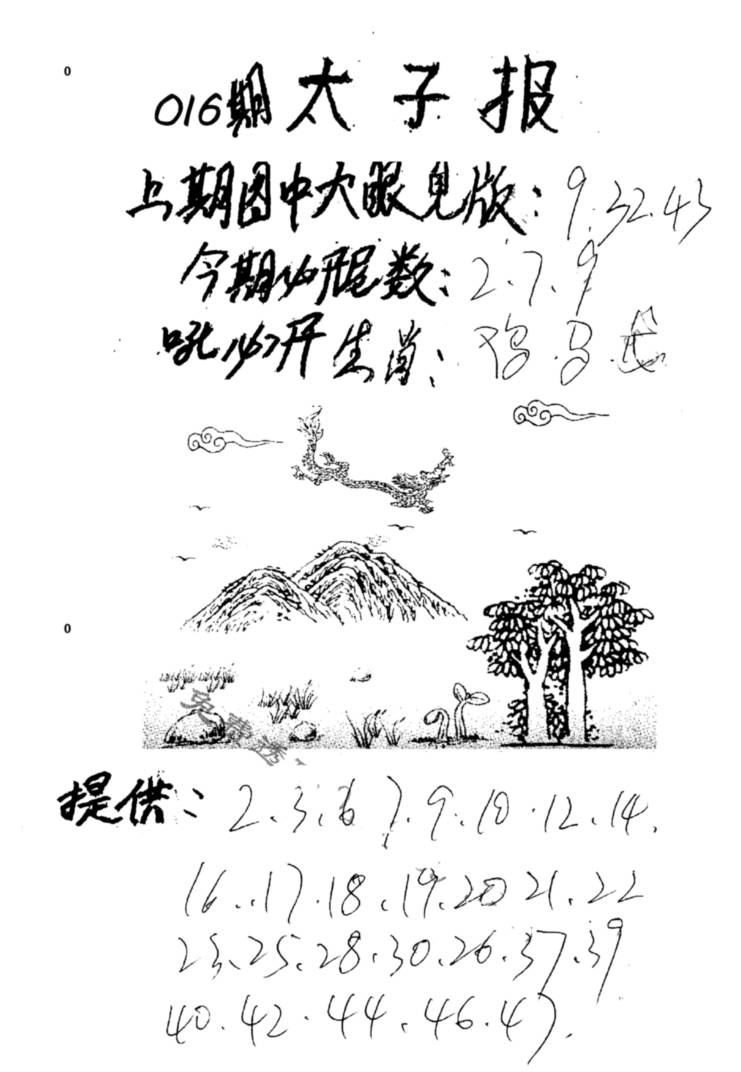 0
016期 太子报
上期图中大眼见版：9.32.43
今期必开尾数：2.7.9
吼必开生肖：鸡.马.
0
免费透
提供：2.3.6.7.9.10.12.14.
16.17.18.19.20 21.22
23.25.28.30.26.37.39
40.42.44.46.47.